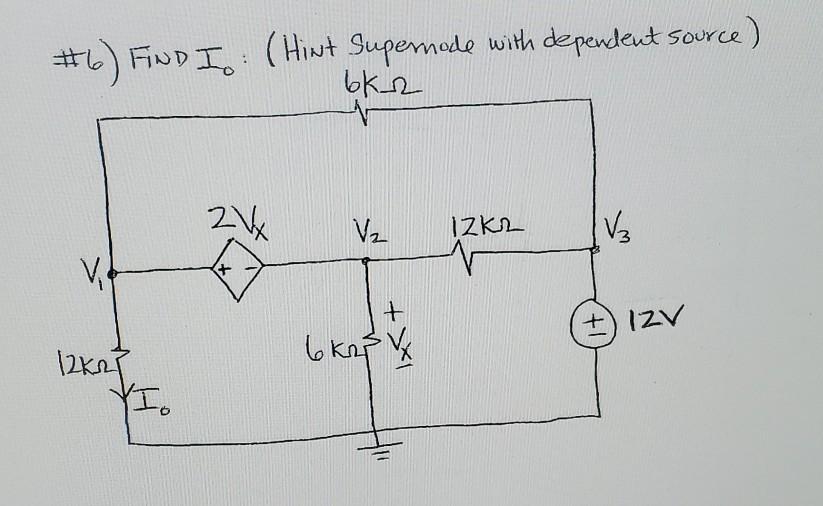 #6) FIND I₀: (Hint Supernode with dependent source)
6KΩ
2Vx
V₂
12KΩ
V₃
V₁
+ -
+
6KΩ Vx
-
± 12V
12KΩ
I₀